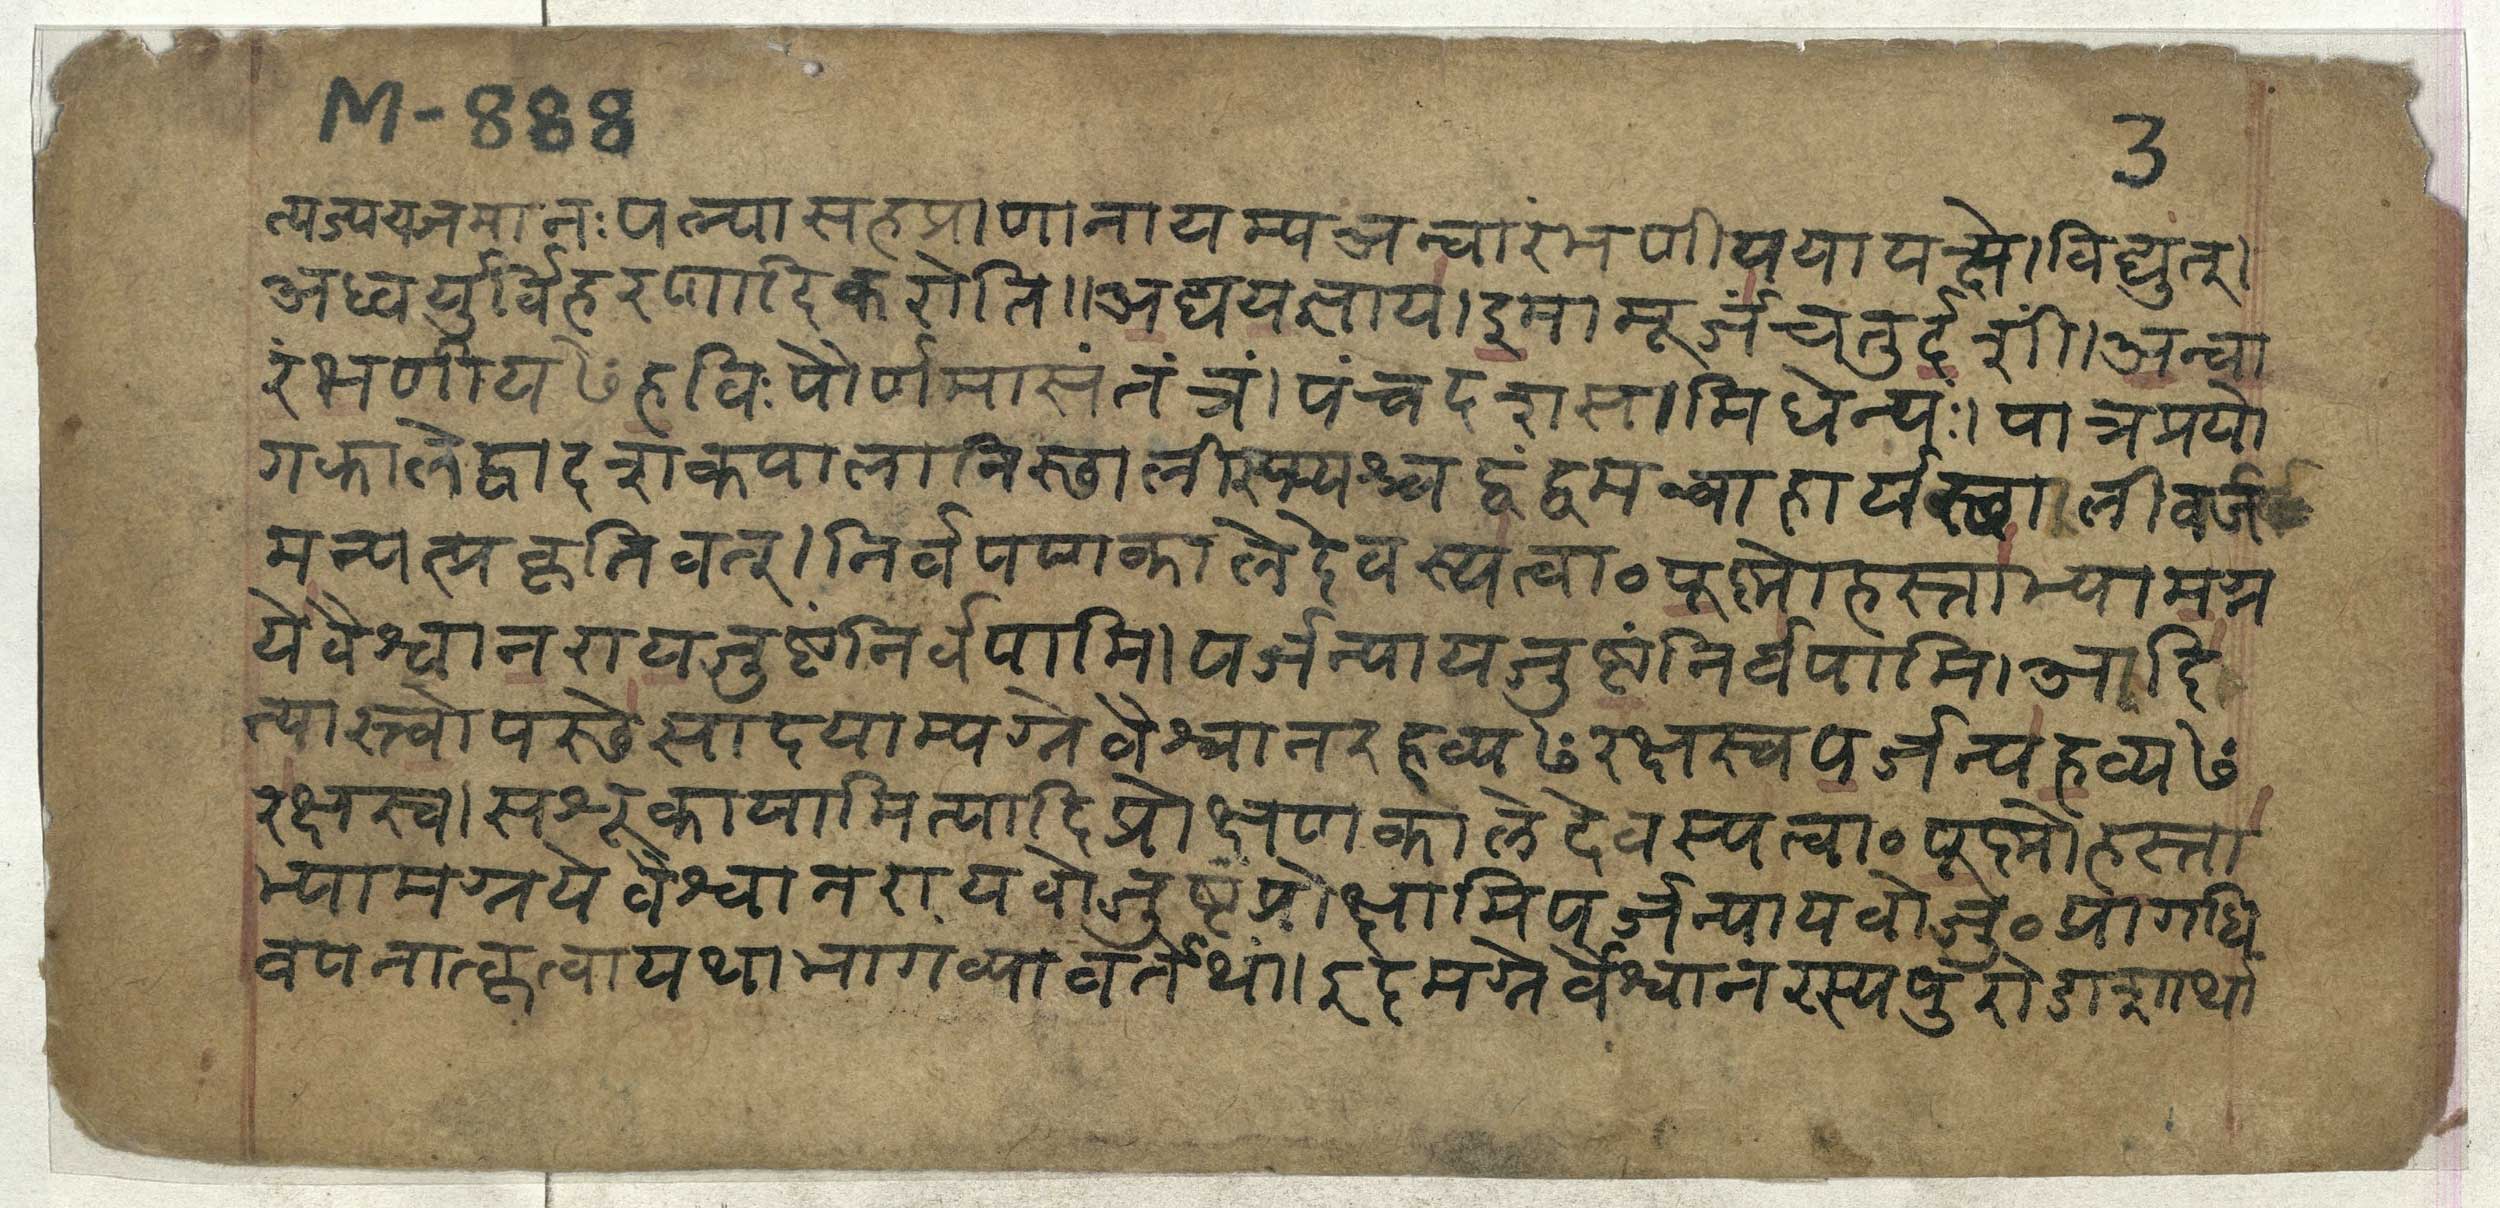 M-888
3
त्यज्ययजमानःपत्न्यासहप्राणानायम्यअन्वारंभणीययायक्ष्ये।विद्युत्।
अध्वर्युर्विहरणादिकरोति॥अद्ययज्ञाय।इमामूर्जंचतुर्दशीं।अन्वा
रंभणीयꣳहविःपौर्णमासंतंत्रं।पंचदशसामिधेन्यः।पात्रप्रयो
गकालेद्वादशकपालानिस्छालीस्फ्यश्चद्वंद्वमन्वाहार्यस्छालीवर्ज
मन्यत्प्रकृतिवत्।निर्वपणकालेदेवस्यत्वा०पूष्णोहस्ताभ्यामग्न
येवैश्वानरायजुष्टंनिर्वपामि।पर्जन्यायजुष्टंनिर्वपामि।आदि
त्यास्त्वोपस्छेसादयाम्यग्नेवैश्वानरहव्यꣳरक्षस्वपर्जन्यहव्यꣳ
रक्षस्व।सशूकायामित्यादिप्रोक्षणकालेदेवस्यत्वा०पूष्णोहस्ता
भ्यामग्नयेवैश्वानरायवोजुष्टंप्रोक्षामिपर्जन्यायवोजु०प्रागधि
वपनात्कृत्वायथाभागंव्यावर्तेथां।इदमग्नेर्वैश्वानरस्यपुरोडाशार्थां